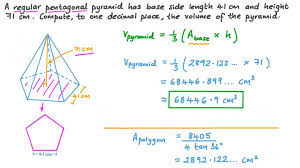 A regular pentagonal pyramid has base side length 41 cm and height
71 cm. Compute, to one decimal place, the volume of the pyramid.
71cm
41cm
n=5 l=41cm
Vpyramid = 1/3 (Abase × h)
Vpyramid = 1/3 (2892·122... × 71)
= 68446·899... cm³
≈ 68446·9 cm³
Apolygon = 8405 / 4 tan 36°
= 2892·122... cm²